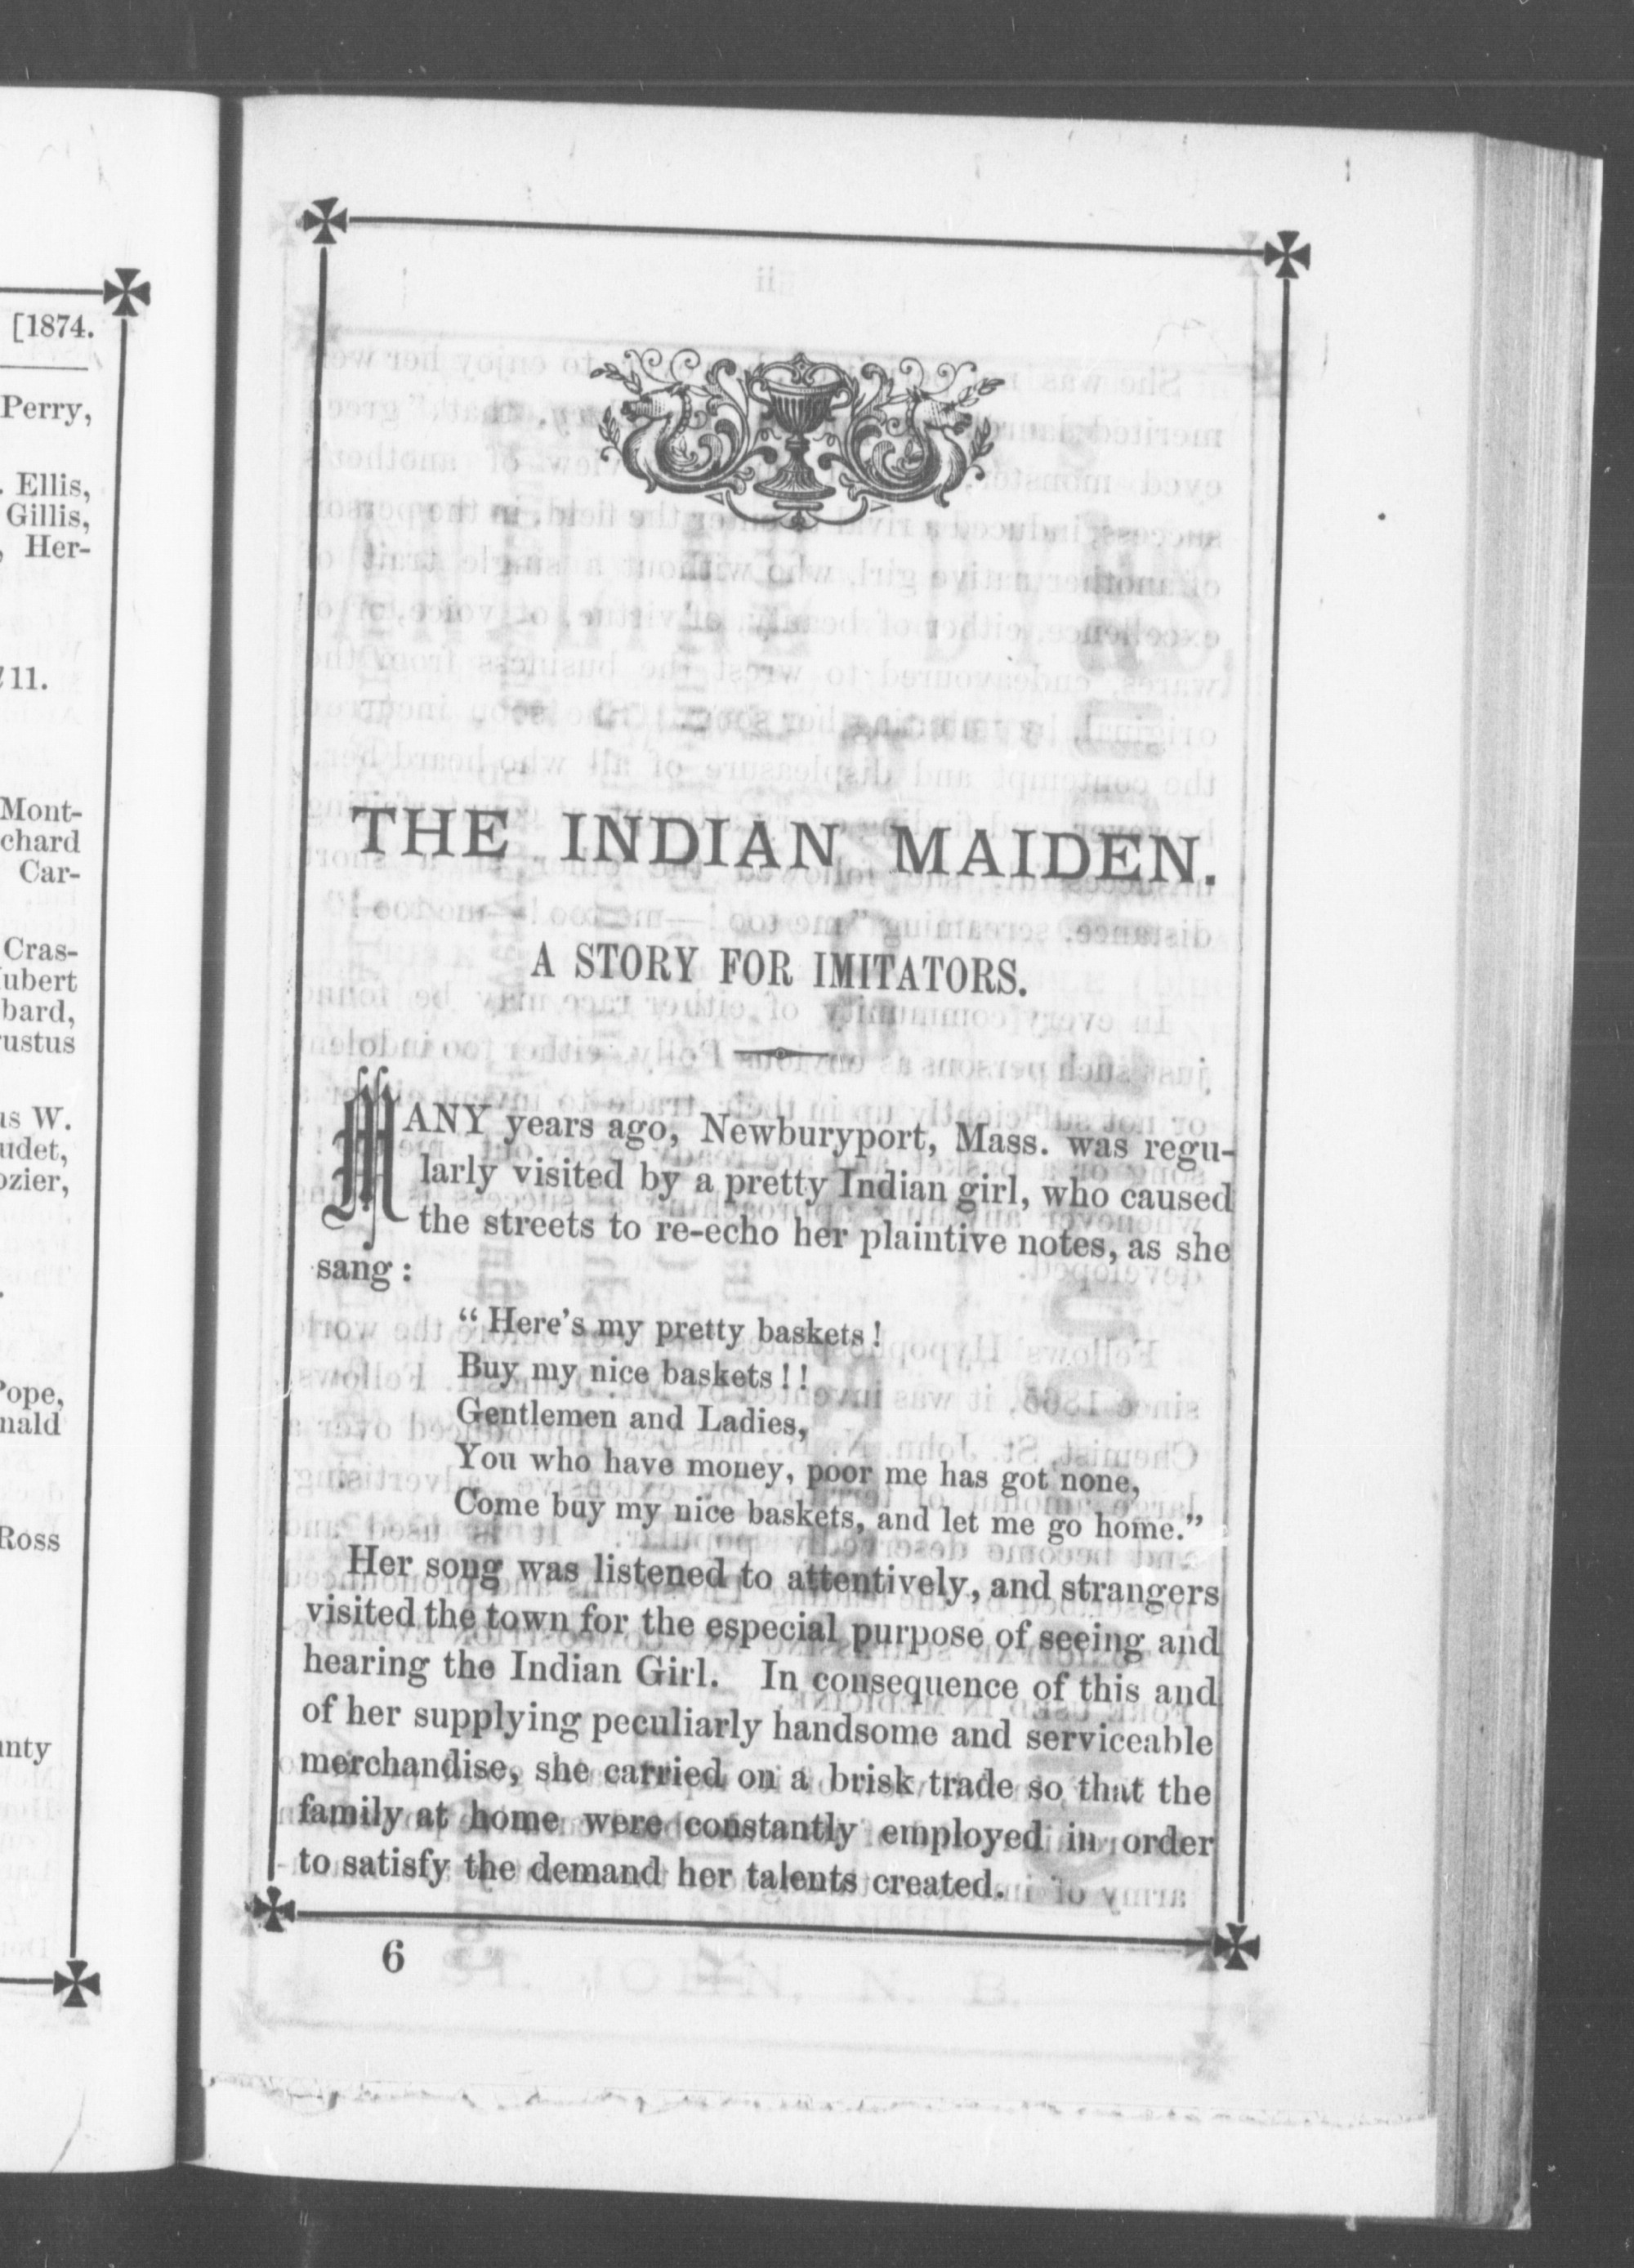 [1874.
Perry,
. Ellis,
Gillis,
, Her-
11.
Mont-
chard
Car-
Cras-
ubert
bard,
ustus
as W.
udet,
ozier,
Pope,
nald
Ross
unty
THE INDIAN MAIDEN.
A STORY FOR IMITATORS.
MANY years ago, Newburyport, Mass. was regu-
larly visited by a pretty Indian girl, who caused
the streets to re-echo her plaintive notes, as she
sang:
“Here's my pretty baskets!
Buy my nice baskets!!
Gentlemen and Ladies,
You who have money, poor me has got none,
Come buy my nice baskets, and let me go home.”
Her song was listened to attentively, and strangers
visited the town for the especial purpose of seeing and
hearing the Indian Girl. In consequence of this and
of her supplying peculiarly handsome and serviceable
merchandise, she carried on a brisk trade so that the
family at home were constantly employed in order
to satisfy the demand her talents created.
6